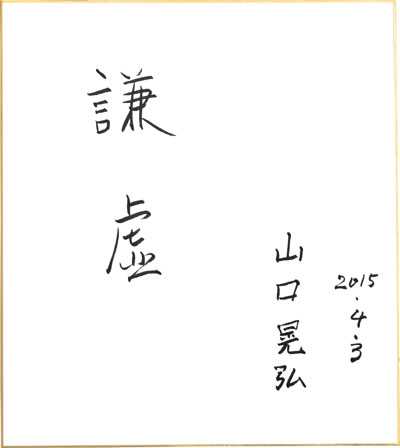 謙虚
2015.4.3
山口晃弘